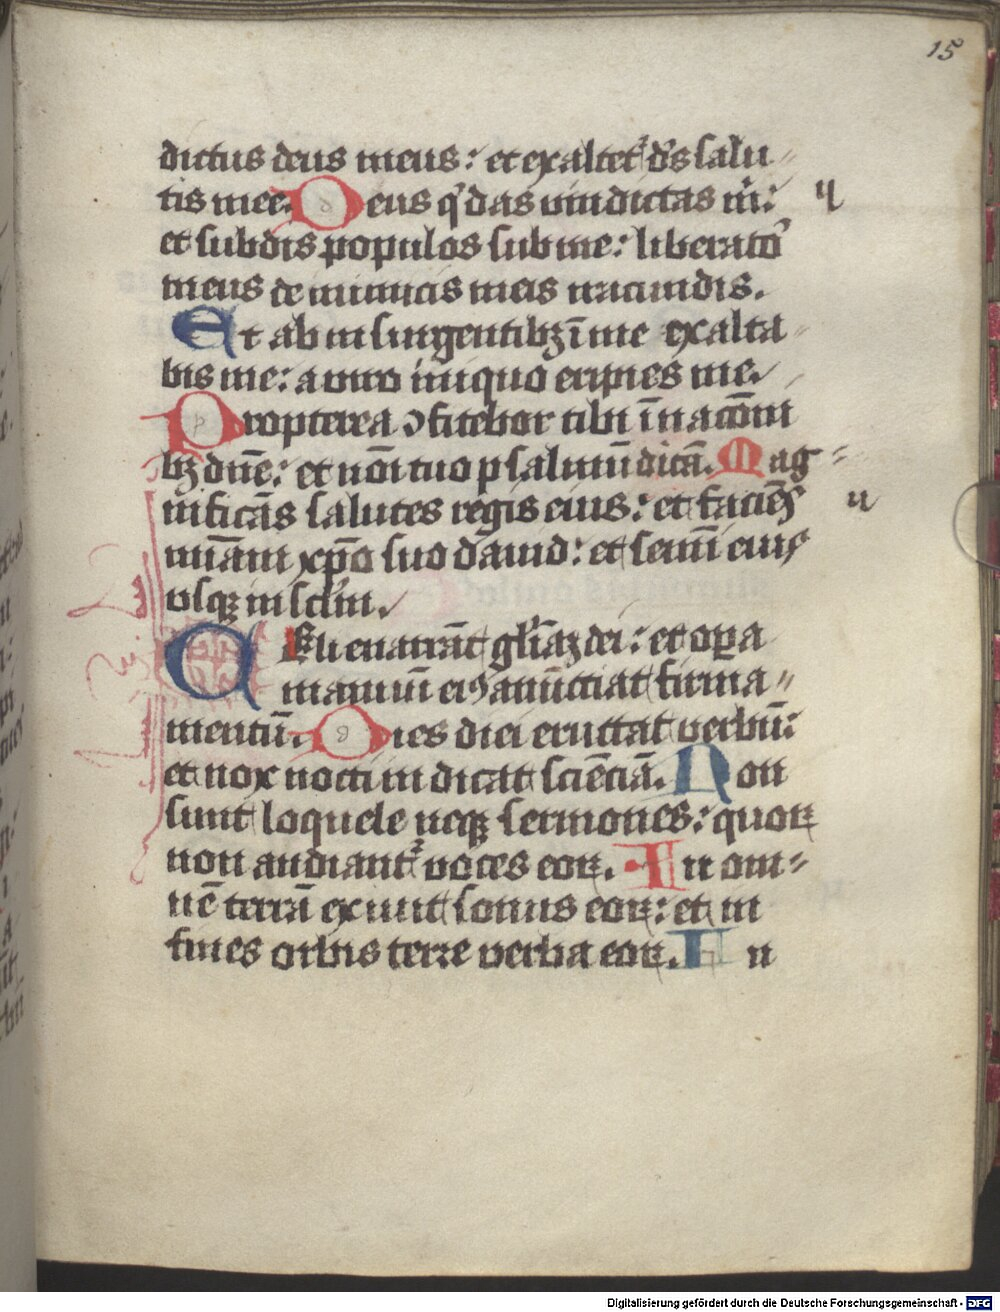 15
dictus deus meus: et exaltet᷑ dn̄s salu
tis mee. Deus q̇ das vindictas m̄:
et subdis populos sub me: liberato᷑
meus de inimicis meis iracundis.
Et ab insurgentibꝫ ī me exalta
bis me: a viro iniquo eripies me.
Propterea ꝯfitebor tibi ī nacōni
bꝫ dn̄e: et nōi tuo psalmū dicā. Mag
nificās salutes regis eius: et faciēs
mīam xp̄o suo dauid: et semī eiuꝯ
vsqꝫ in sclm̄.
Celi enarrāt gl̄iaꝫ dei: et oꝑa
manuū eiꝰ anūctiat firma
mentū. Dies diei eructat verbū:
et nox nocti indicat sciēciā. Non
sunt loquele neqꝫ sermones: quoꝝ
non audiant᷑ voces eoꝝ. In om
nē terrā exiuit sonus eoꝝ: et in
fines orbis terre verba eoꝝ. In
Digitalisierung gefördert durch die Deutsche Forschungsgemeinschaft - DFG